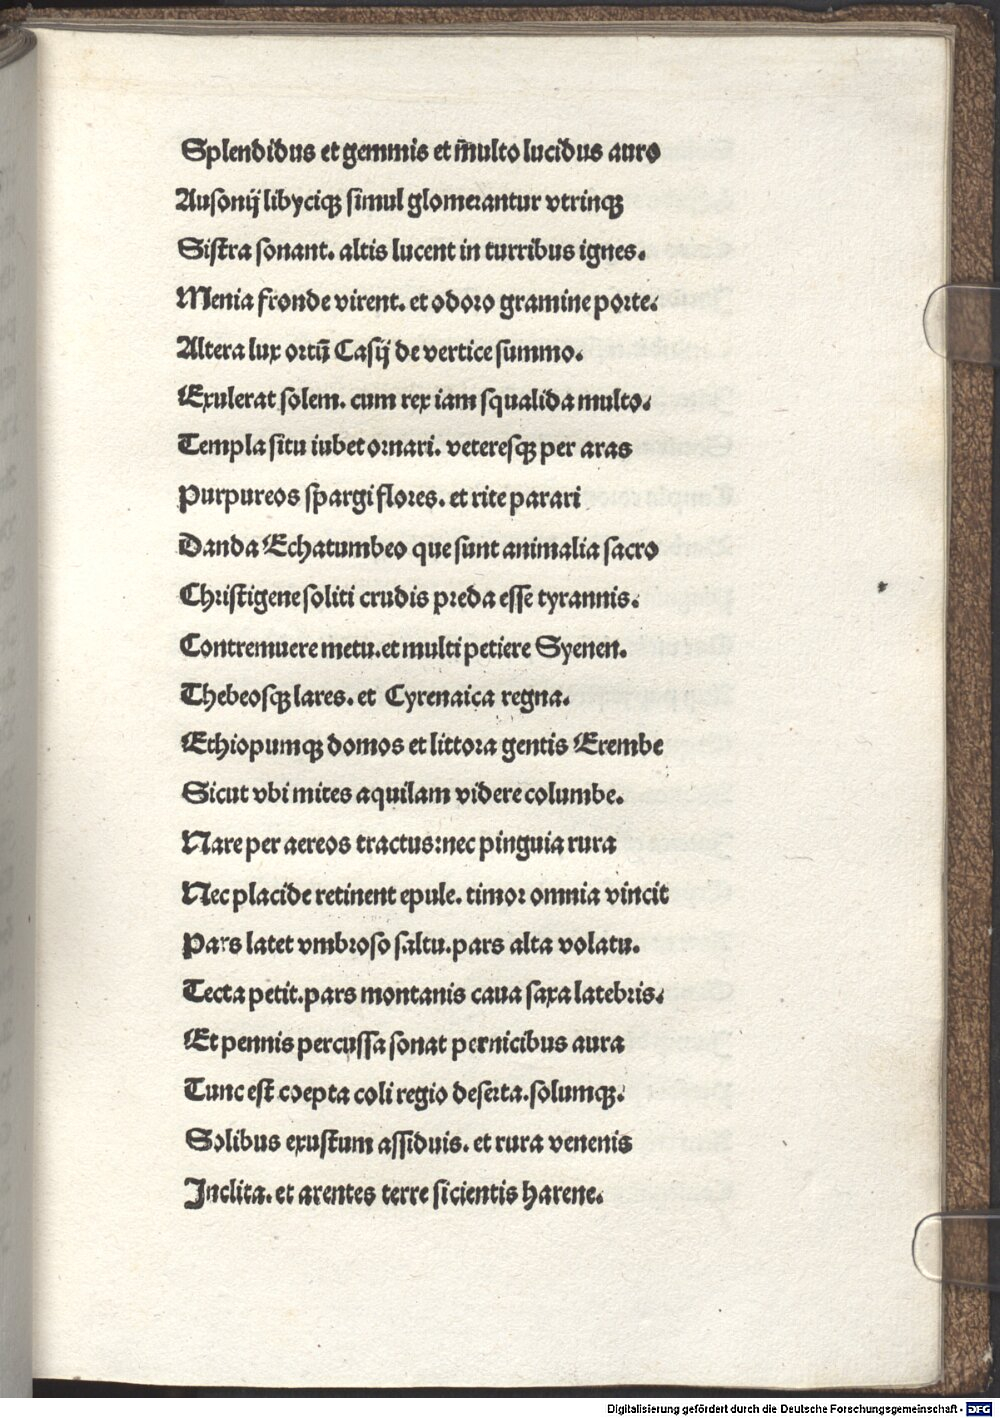 Splendidus et gemmis et m̄ulto lucidus auro
Ausonij libyciqꝫ simul glomerantur vtrinqꝫ
Sistra sonant. altis lucent in turribus ignes.
Menia fronde virent. et odoro gramine porte.
Altera lux ortū Casij de vertice summo.
Exulerat solem. cum rex iam squalida multo.
Templa situ iubet ornari. veteresqꝫ per aras
Purpureos spargi flores. et rite parari
Danda Echatumbeo que sunt animalia sacro
Christigene soliti crudis preda esse tyrannis.
Contremuere metu. et multi petiere Syenen.
Thebeosqꝫ lares. et Cyrenaica regna.
Ethiopumqꝫ domos et littora gentis Erembe
Sicut vbi mites aquilam videre columbe.
Nare per aereos tractus: nec pinguia rura
Nec placide retinent epule. timor omnia vincit
Pars latet vmbroso saltu. pars alta volatu.
Tecta petit. pars montanis caua saxa latebris.
Et pennis percussa sonat pernicibus aura
Tunc est coepta coli regio deserta. solumqꝫ.
Solibus exustum assiduis. et rura venenis
Inclita. et arentes terre sicientis harene.
Digitalisierung gefördert durch die Deutsche Forschungsgemeinschaft - DFG